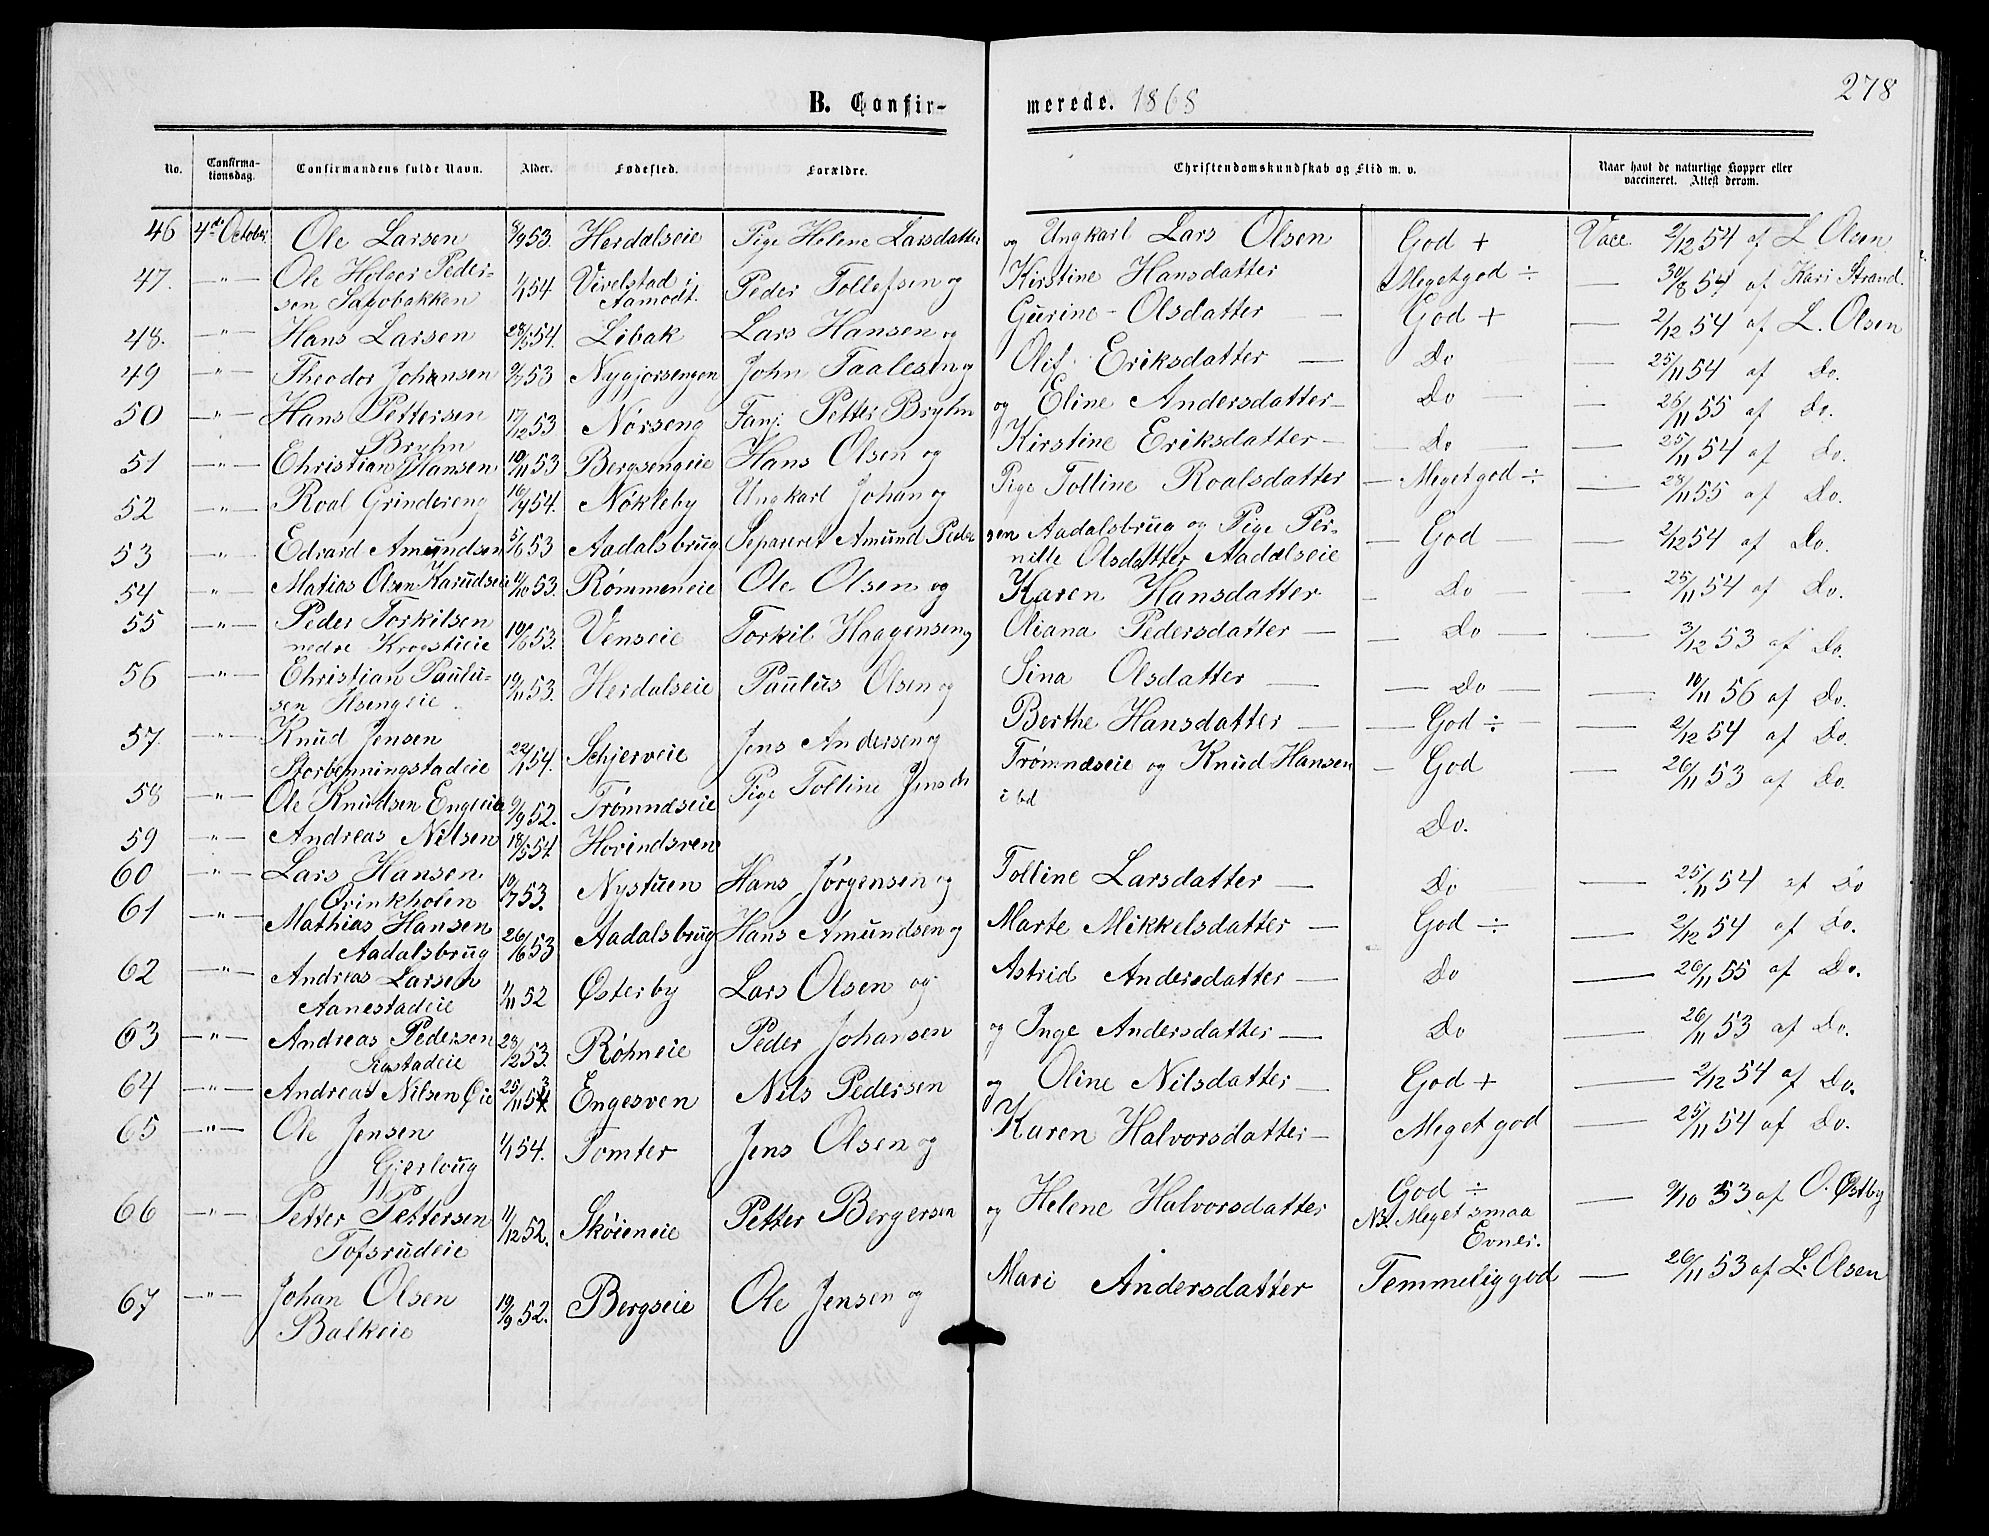 278
B. Confir- merede. 1868
No. Confirma-tionsdag. Confirmandens fulde Navn. Alder. Fødested. Forældre. Christendomskundskab og Flid m. v. Naar havt de naturlige Kopper eller vaccineret. Attest derom.
46 4de October Ole Larsen 8/9 53. Herdalseie Pige Helene Larsdatter og Ungkarl Lars Olsen God + Vacc. 2/12 54 af L. Olsen
47. —"— Ole Holger Peder- 1/1 54 Vivelstad i Peder Tollefsen og Kirstine Hansdatter Meget god ÷ — 30/8 54 af Kari Strand.
sen Sagbakken Aamodt.
48. —"— Hans Larsen 28/5 54. Libak Lars Hansen og Gurine Olsdatter — God + — 2/12 54 af L. Olsen
49 —"— Theodor Johansen 53 John Taalesen og Olif Eriksdatter — Do — 25/11 54 af Do.
50 —"— Hans Pettersen 17/12 53 Nørseng Fanj. Petter Bryhn og Eline Andersdatter — Do — — 26/11 55 af Do.
Bryhn
51 —"— Christian Hansen 10/11 53 Bergsengeie Hans Olsen og Kirstine Eriksdatter — — Do — — 25/11 54 af Do.
52 —"— Roal Grindereng 16/4 54. Nøkleby Ungkarl Johan og Pige Tolline Roalsdatter — Meget god ÷ — 28/11 55 af Do.
53 —"— Edvard Amundsen 5/6 53 Aadalsbrug Separeret Amund Peder sen Aadalsbrug og Pige Per- — God — — 2/12 54 af Do.
nille Olsdatter Aadalseie
54 —"— Matias Olsen Karudseie 11/10 53. Rømmeneie Ole Olsen og Karen Hansdatter — Do — — 25/11 54 af Do.
55 —"— Peder Torkilsen 10/6 53. Venseie Torkil Haagensen og Oliana Pedersdatter — — Do — — 3/12 53 af Do.
nedre Krogstieie
56 —"— Christian Paulu- 19/11 53. Herdalseie Paulus Olsen og Sina Olsdatter — — Do — — 10/11 56 af Do.
sen Hsengeie
57. —"— Knud Jensen 22/1 54. Schjerveie Jens Andersen og Berthe Hansdatter — — God ÷ — — 2/12 54 af Do.
Storbenningstadeie
58 —"— Ole Knudsen Engeie 9/9 52. Trømnæseie Pige Tolline Jensdr Trømnæseie og Knud Hansen — God — 26/11 53 af Do.
ibd
59 —"— Andreas Nilsen 18/5 54. Hovindsven Do.
60 —"— Lars Hansen 10/7 53. Nystuen Hans Jørgensen og Tolline Larsdatter — Do — — 25/11 54 af Do
Qvinkholen
61 —"— Mathias Hansen 26/6 53 Aadalsbrug Hans Amundsen og Marte Mikkelsdatter — God ÷ — 2/12 54 af Do.
Aadalsbrug
62 —"— Andreas Larsen 1/11 52 Østerby Lars Olsen og Astrid Andersdatter — Do — 26/11 55 af Do.
Aanestadeie
63 —"— Andreas Pedersen 28/12 53. Røhneie Peder Johansen og Inge Andersdatter — Do — 26/11 53 af Do.
64 —"— Andreas Nilsen Øie 25/11 53 Engesven Nils Pedersen og Oline Nilsdatter — God + — 2/12 54 af Do.
65 —"— Ole Jensen 1/1 54. Tomter Jens Olsen og Karen Halvorsdatter — Meget god — 25/11 54 af Do.
Gjerloug
66 —"— Petter Pettersen 11/12 52. Skøieneie Petter Bergersen og Helene Halvorsdatter God ÷ — 9/10 53 af O. Østby
Tofsrudeie NB. Meget smaa
Evner.
67 —"— Johan Olsen 19/9 52. Bergseie Ole Jensen og Mari Andersdatter Temmelig god — 26/11 53 af L. Olsen
Balkeie